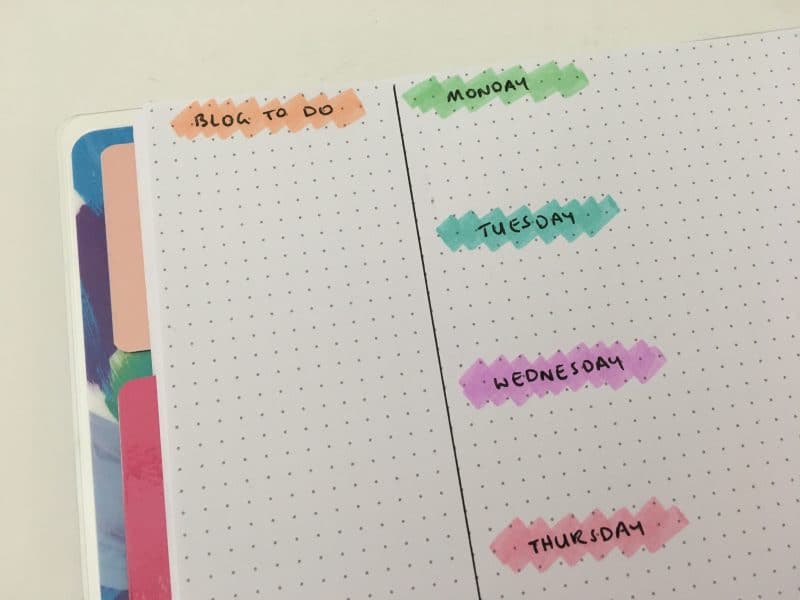 BLOG TO DO
MONDAY
TUESDAY
WEDNESDAY
THURSDAY